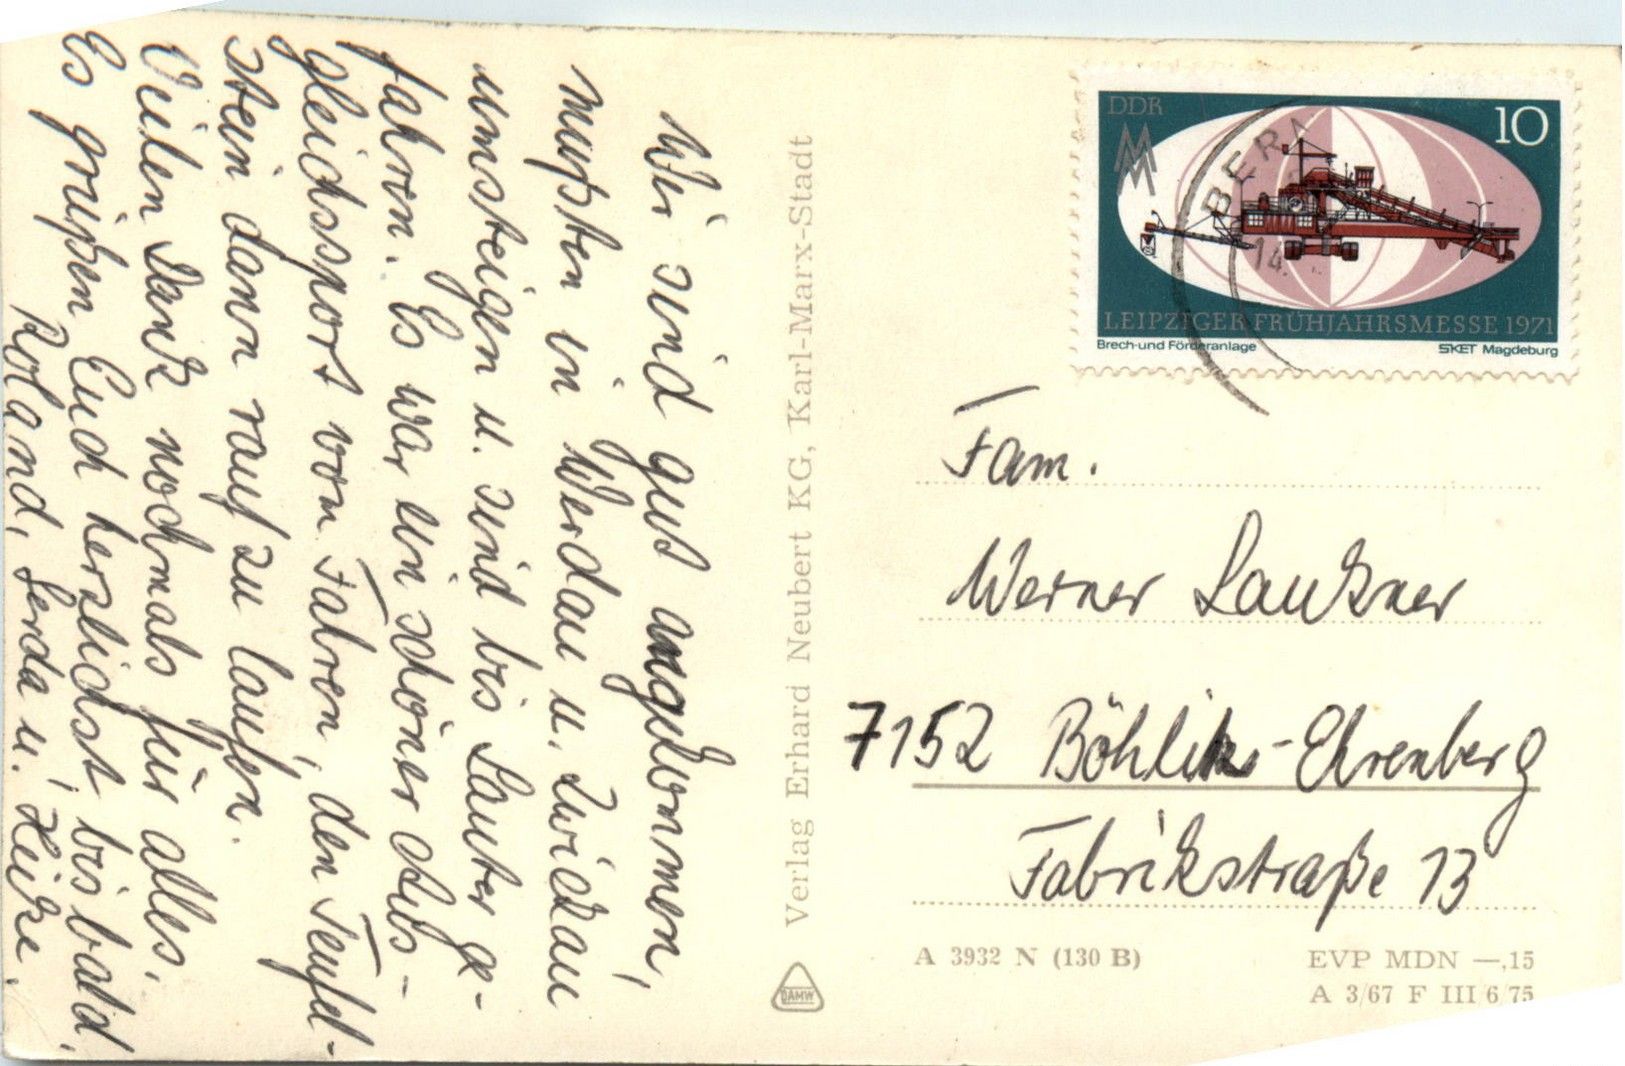 Wir sind gut angekommen,
mußten in Werdau u. Zwickau
umsteigen u. sind bis Lauter ge-
fahren. Es war ein schöner Aus-
gleichssport vom Fahren, den Teufel-
stein dann rauf zu laufen.
Vielen Dank nochmals für alles.
Es grüßen Euch herzlichst bis bald
Roland, Gerda u. Heike.
Verlag Erhard Neubert KG, Karl-Marx-Stadt
DAMW
DDR
10
MM
BER
14.
LEIPZIGER FRÜHJAHRSMESSE 1971
Brech- und Förderanlage SKET Magdeburg
Fam.
Werner Lankner
7152 Böhlitz-Ehrenberg
Fabrikstraße 13
A 3932 N (130 B) EVP MDN —,15
A 3/67 F III/6/75